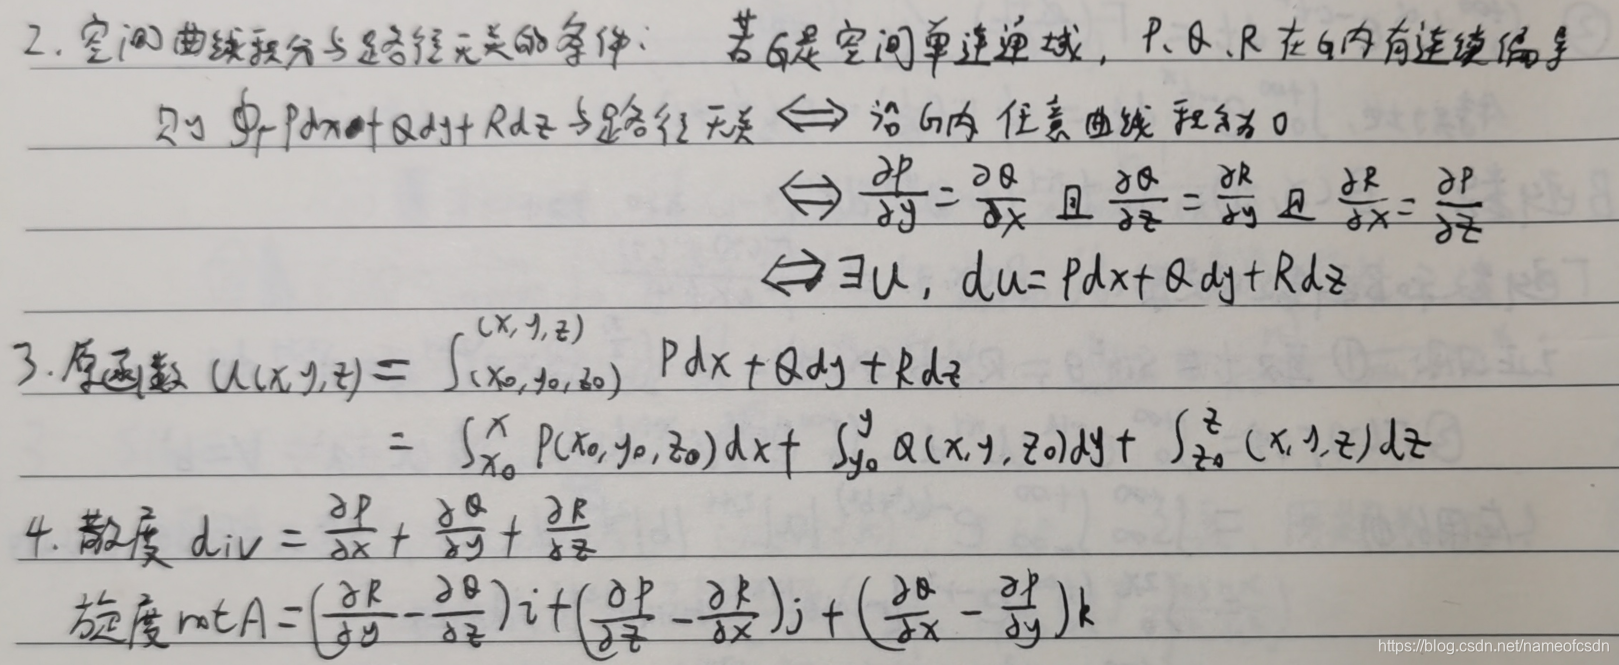 2. 空间曲线积分与路径无关的条件: 若G是空间单连通域, P、Q、R在G内有连续偏导
则 ∮Γ Pdx+Qdy+Rdz与路径无关 ⟺ 沿G内任意曲线积分为0
⟺ ∂P/∂y = ∂Q/∂x 且 ∂Q/∂z = ∂R/∂y 且 ∂R/∂x = ∂P/∂z
⟺ ∃u, du = Pdx+Qdy+Rdz
3. 原函数 u(x,y,z) = ∫_(x0,y0,z0)^(x,y,z) Pdx+Qdy+Rdz
= ∫_x0^x P(x0,y0,z0)dx + ∫_y0^y Q(x,y,z0)dy + ∫_z0^z (x,y,z)dz
4. 散度 div = ∂P/∂x + ∂Q/∂y + ∂R/∂z
旋度 rotA = (∂R/∂y - ∂Q/∂z)i + (∂P/∂z - ∂R/∂x)j + (∂Q/∂x - ∂P/∂y)k
https://blog.csdn.net/nameofcsdn